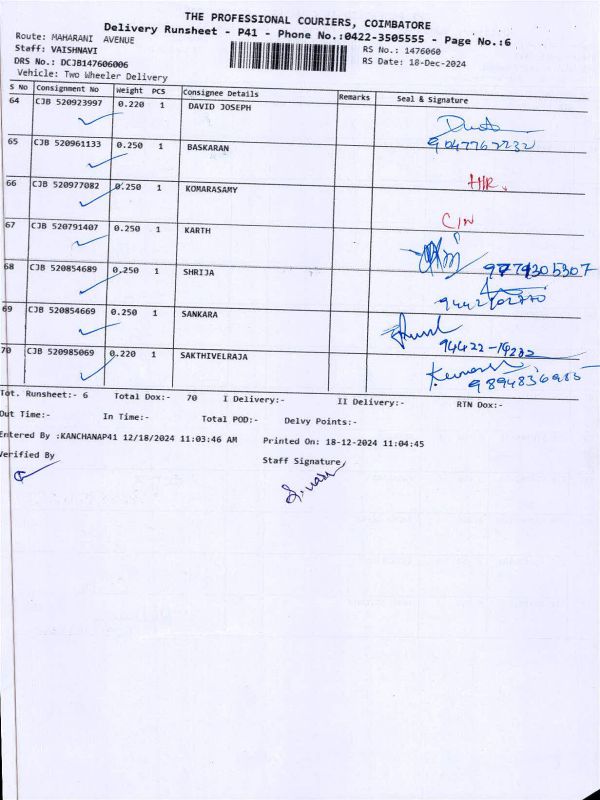 THE PROFESSIONAL COURIERS, COIMBATORE
Delivery Runsheet - P41 - Phone No.:0422-3505555 - Page No.:6
Route: MAHARANI AVENUE
RS No.: 1476060
Staff: VAISHNAVI
RS Date: 18-Dec-2024
DRS No.: DCJB147606006
Vehicle: Two Wheeler Delivery
S No Consignment No Weight PCS Consignee Details Remarks Seal & Signature
64 CJB 520923997 0.220 1 DAVID JOSEPH
9047767232
65 CJB 520961133 0.250 1 BASKARAN
HR.
66 CJB 520977082 0.250 1 KOMARASAMY
C/N
67 CJB 520791407 0.250 1 KARTH
68 CJB 520854689 0.250 1 SHRIJA
69 CJB 520854669 0.250 1 SANKARA
70 CJB 520985069 0.220 1 SAKTHIVELRAJA
9894836985
Tot. Runsheet:- 6 Total Dox:- 70 I Delivery:- II Delivery:- RTN Dox:-
Out Time:- In Time:- Total POD:- Delvy Points:-
Entered By :KANCHANAP41 12/18/2024 11:03:46 AM Printed On: 18-12-2024 11:04:45
Verified By Staff Signature